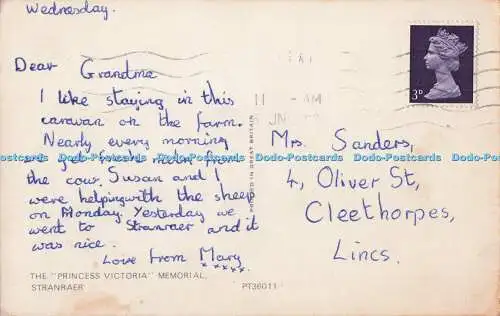 Wednesday.
Dear Grandma
I like staying in this
caravan on the farm.
Nearly every morning
we get fresh cream from
the cow. Susan and I
were helping with the sheep
on Monday. Yesterday we
went to Stranraer and it
was nice.
Love from Mary
xxxxx
THE "PRINCESS VICTORIA" MEMORIAL,
STRANRAER
PT36011
PRINTED IN GREAT BRITAIN
11 - AM
JN
3D
Mrs. Sanders,
4, Oliver St,
Cleethorpes,
Lincs.
Dodo-Postcards Dodo-Postcards Dodo-Postcards Dodo-Postcards Dodo-Postcards Dodo-Postcards